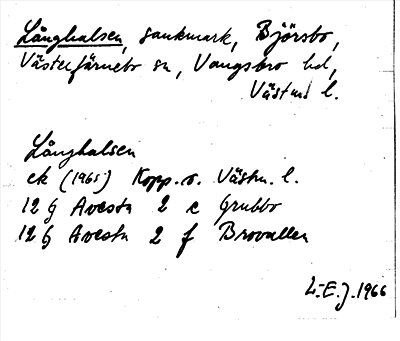 Långhalsen, sankmark, Björsbo,
Västerfärnebo sn, Vangsbro hd,
Västm l.
Långhalsen
ek (1965) Kopp. o. Västm. l.
12 G Avesta 2 e Grubbo
12 G Avesta 2 f Brovallen
L.E.J. 1966